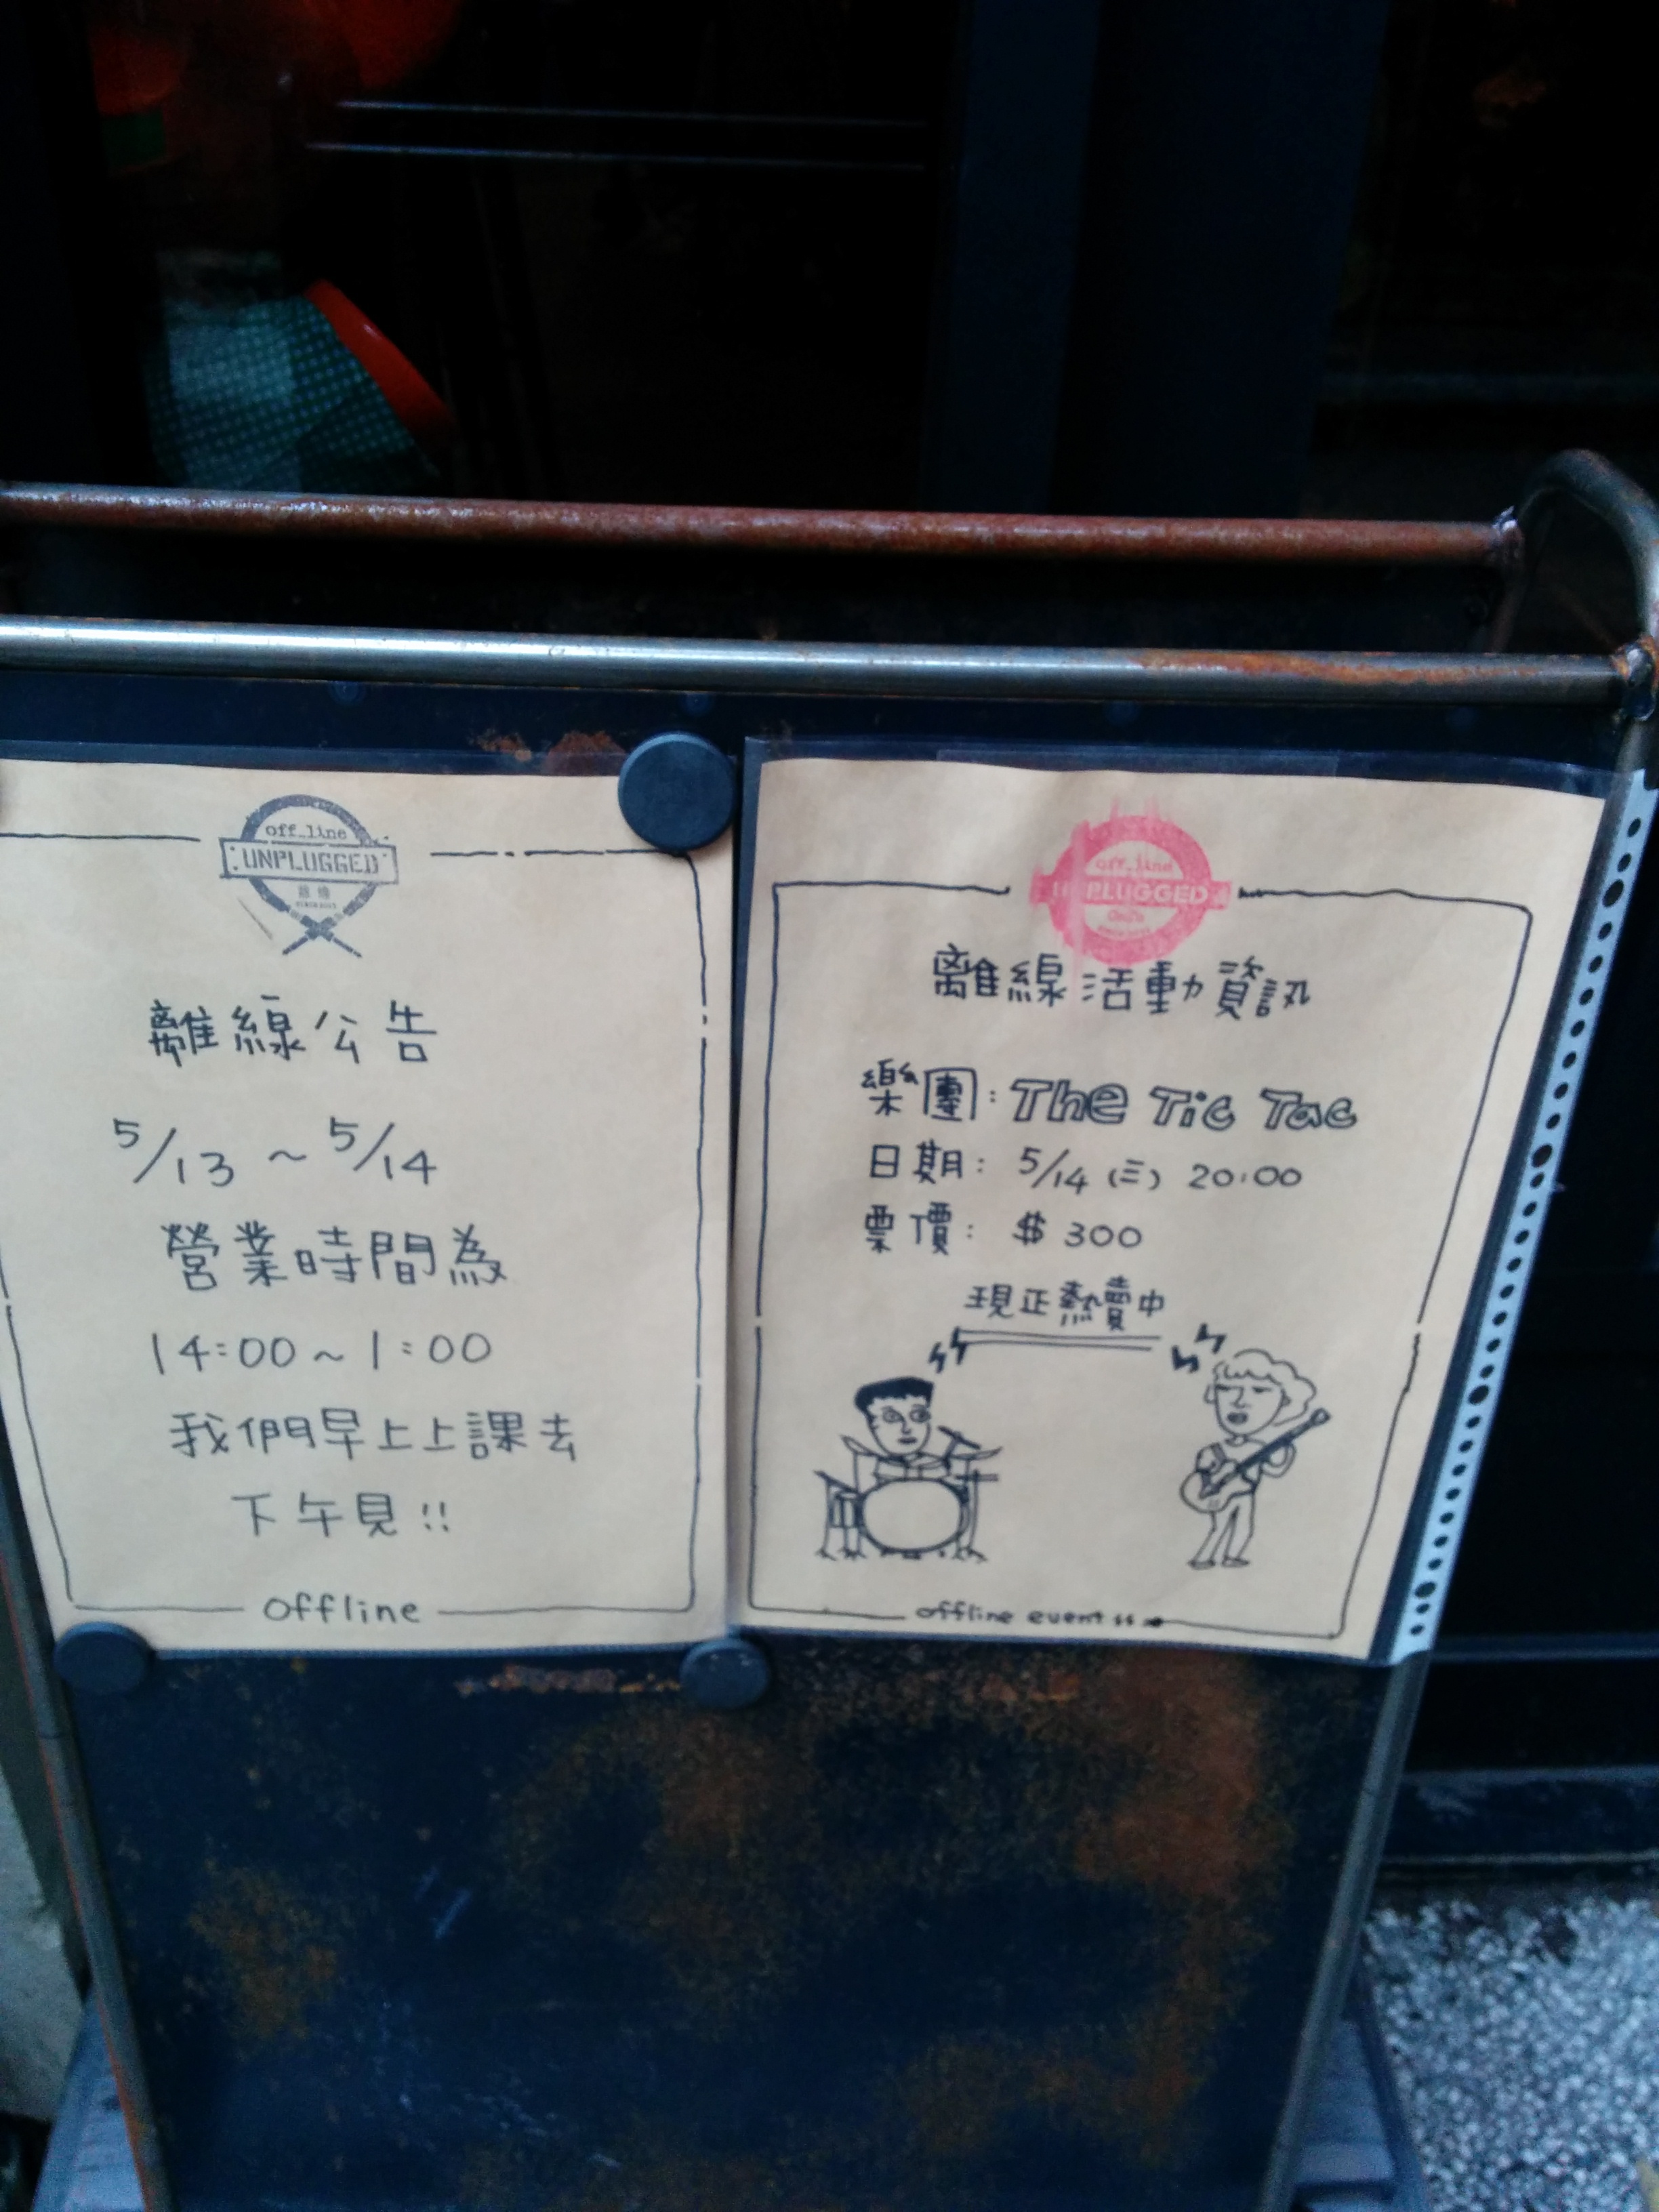 off_line
UNPLUGGED
離線
離線公告
5/13 ~ 5/14
營業時間為
14:00 ~ 1:00
我們早上上課去
下午見!!
offline
off_line
UNPLUGGED
離線活動資訊
樂團: The Tic Tac
日期: 5/14 (三) 20:00
票價: $ 300
現正熱賣中
offline event